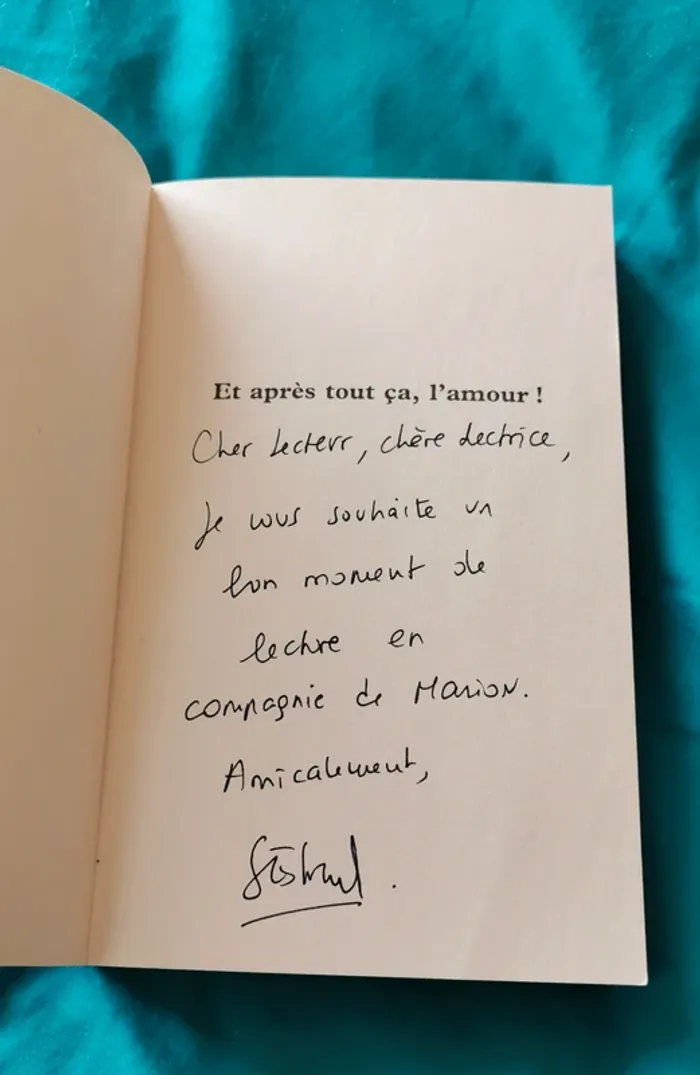 Et après tout ça, l'amour !
Cher Lecteur, chère Lectrice,
Je vous souhaite un
bon moment de
lecture en
compagnie de Marion.
Amicalement,